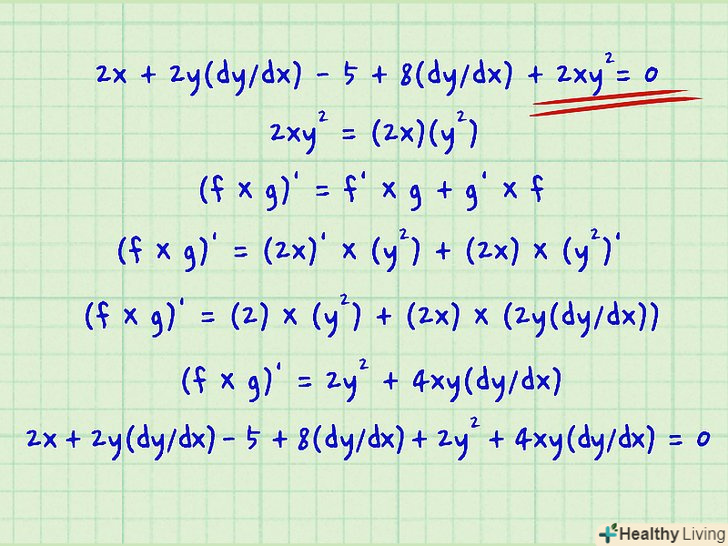 2x + 2y(dy/dx) - 5 + 8(dy/dx) + 2xy² = 0
2xy² = (2x)(y²)
(f x g)' = f' x g + g' x f
(f x g)' = (2x)' x (y²) + (2x) x (y²)'
(f x g)' = (2) x (y²) + (2x) x (2y(dy/dx))
(f x g)' = 2y² + 4xy(dy/dx)
2x + 2y(dy/dx) - 5 + 8(dy/dx) + 2y² + 4xy(dy/dx) = 0
Healthy Living